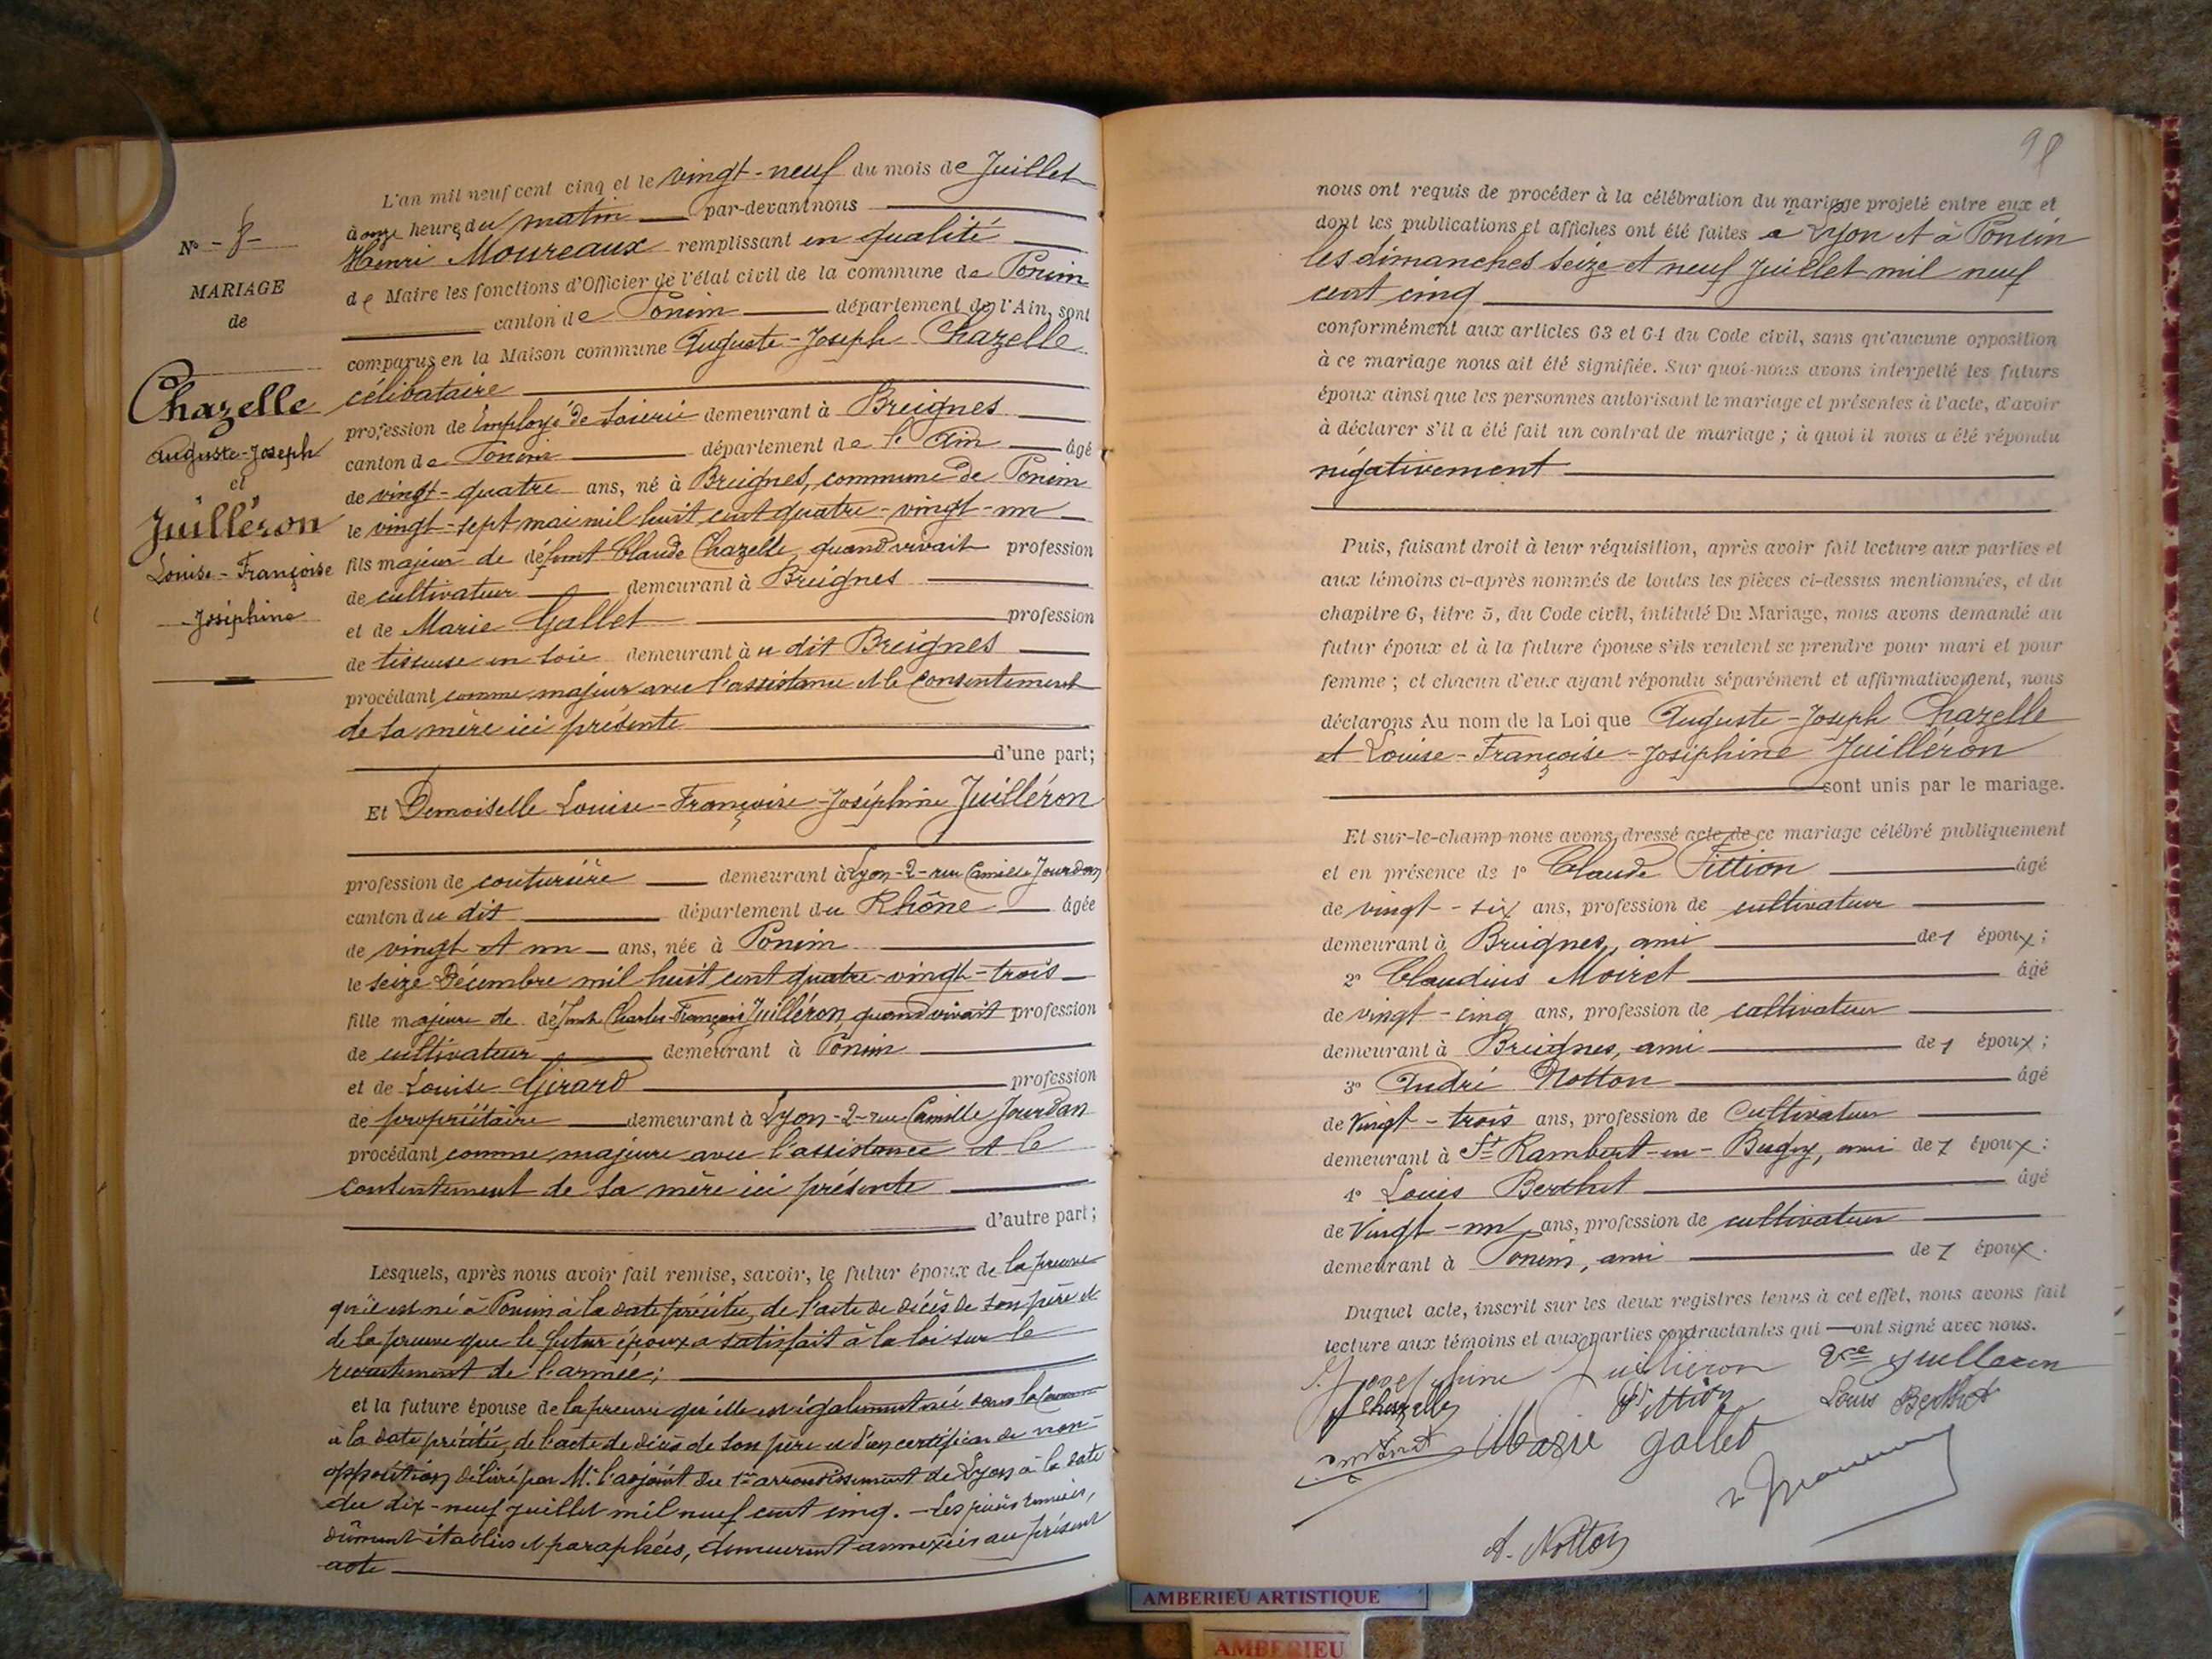 N° - 8 -
MARIAGE
de
Chazelle
Auguste-Joseph
et
Juilléron
Louise-Françoise
-Joséphine
L'an mil neuf cent cinq et le vingt-neuf du mois de Juillet
à onze heures du matin par-devant nous
Henri Moureaux remplissant en qualité
de Maire les fonctions d'Officier de l'état civil de la commune de Poncin
canton de Poncin département de l'Ain, sont
comparus en la Maison commune Auguste-Joseph Chazelle
célibataire
profession de Employé de soierie demeurant à Breignes
canton de Poncin département de l'Ain âgé
de vingt-quatre ans, né à Breignes, commune de Poncin
le vingt-sept mai mil huit cent quatre-vingt-un
fils majeur de défunt Claude Chazelle, quand vivait profession
de cultivateur demeurant à Breignes
et de Marie Gallet profession
de tisseuse en soie demeurant à u dit Breignes
procédant comme majeur avec l'assistance et le consentement
de sa mère ici présente
d'une part;
Et Demoiselle Louise-Françoise-Joséphine Juilléron
profession de couturière demeurant à Lyon-2-rue Camille Jourdan
canton du dit département du Rhône âgée
de vingt et un ans, née à Poncin
le seize Décembre mil huit cent quatre-vingt-trois
fille majeure de défunt Charles-François Juilléron, quand vivait profession
de cultivateur demeurant à Poncin
et de Louise Girard profession
de propriétaire demeurant à Lyon-2-rue Camille Jourdan
procédant comme majeure avec l'assistance et le
consentement de sa mère ici présente
d'autre part;
Lesquels, après nous avoir fait remise, savoir, le futur époux de la preuve
qu'il est né à Poncin à la date précitée, de l'acte de décès de son père et
de la preuve que le futur époux a satisfait à la loi sur le
recrutement de l'armée;
et la future épouse de la preuve qu'elle est également née dans la
à la date précitée, de l'acte de décès de son père et d'un certificat de non-
opposition délivré par Mr. l'adjoint du 1er arrondissement de Lyon à la date
du dix-neuf juillet mil neuf cent cinq. - Les pièces
dûment établies et paraphées, demeurent annexées au présent
acte
98
nous ont requis de procéder à la célébration du mariage projeté entre eux et
dont les publications et affiches ont été faites à Lyon et à Poncin
les dimanches seize et neuf Juillet mil neuf
cent cinq
conformément aux articles 63 et 64 du Code civil, sans qu'aucune opposition
à ce mariage nous ait été signifiée. Sur quoi nous avons interpellé les futurs
époux ainsi que les personnes autorisant le mariage et présentes à l'acte, d'avoir
à déclarer s'il a été fait un contrat de mariage ; à quoi il nous a été répondu
négativement
Puis, faisant droit à leur réquisition, après avoir fait lecture aux parties et
aux témoins ci-après nommés de toutes les pièces ci-dessus mentionnées, et du
chapitre 6, titre 5, du Code civil, intitulé Du Mariage, nous avons demandé au
futur époux et à la future épouse s'ils veulent se prendre pour mari et pour
femme ; et chacun d'eux ayant répondu séparément et affirmativement, nous
déclarons Au nom de la Loi que Auguste-Joseph Chazelle
et Louise-Françoise-Joséphine Juilléron
sont unis par le mariage.
Et sur-le-champ nous avons dressé acte de ce mariage célébré publiquement
et en présence de 1° Claude Fittion âgé
de vingt-six ans, profession de cultivateur
demeurant à Breignes, ami des époux;
2° Claudius Moiret âgé
de vingt-cinq ans, profession de cultivateur
demeurant à Breignes, ami des époux;
3° André Notton âgé
de Vingt-trois ans, profession de Cultivateur
demeurant à St Rambert-en-Bugey, ami des époux:
4° Louis Berthet âgé
de Vingt-un ans, profession de cultivateur
demeurant à Poncin, ami des époux.
Duquel acte, inscrit sur les deux registres tenus à cet effet, nous avons fait
lecture aux témoins et aux parties contractantes qui ont signé avec nous.
Josephine Juilleron Vve Juilleron
A Chazelle Fittion Louis Berthet
Moiret Marie Gallet
A. Notton
AMBERIEU ARTISTIQUE
AMBERIEU